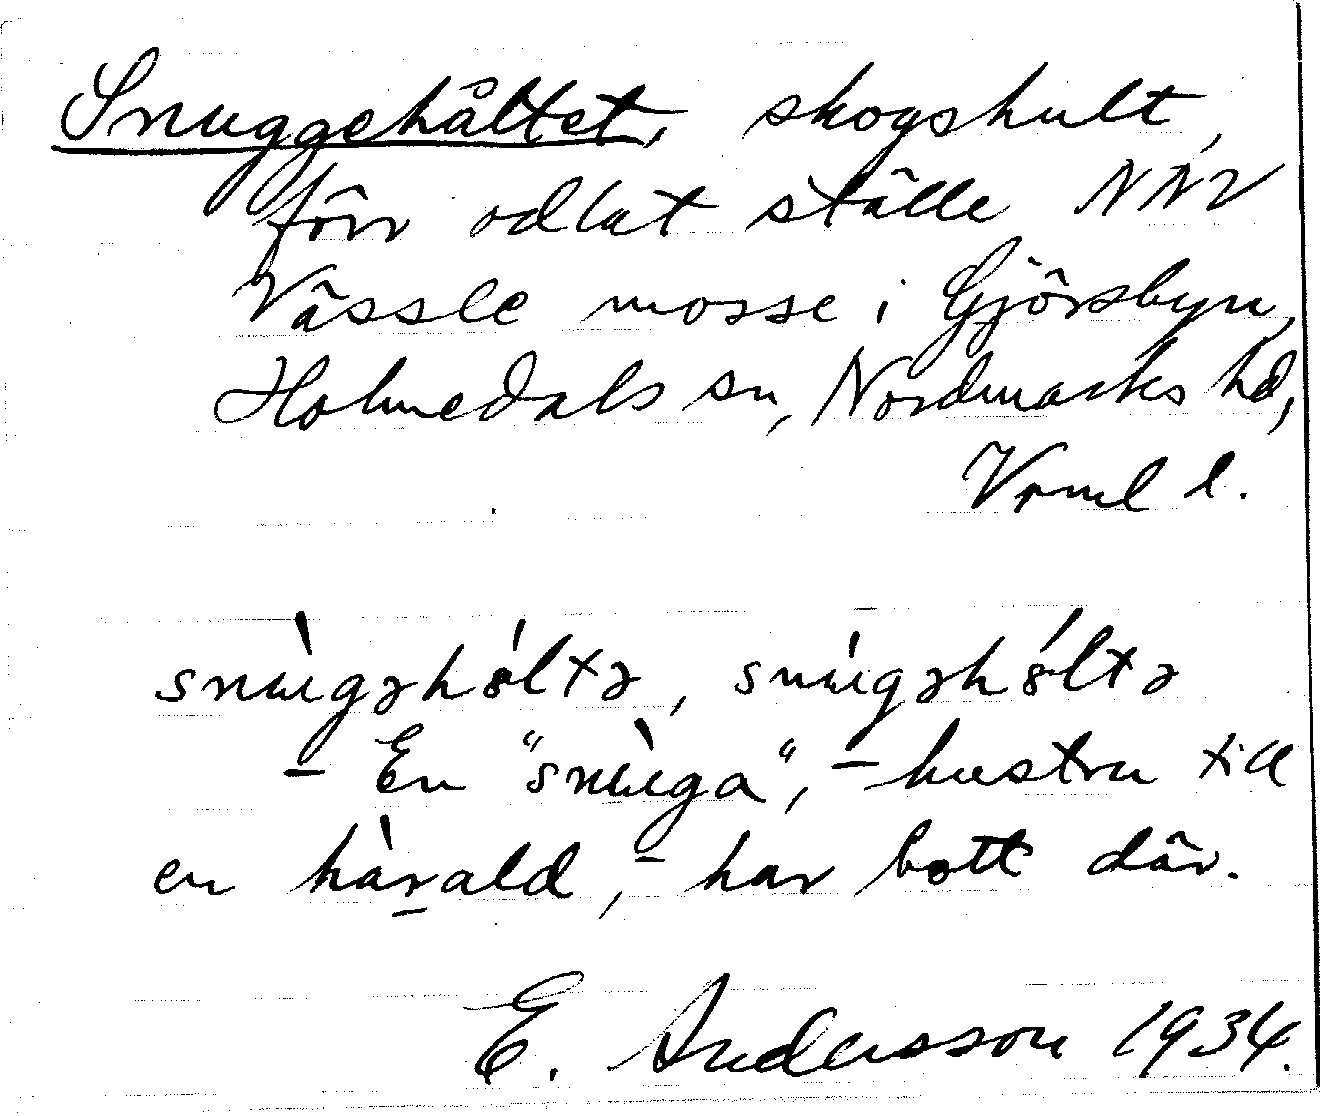 Snuggehåltet, skogshult,
förr odlat ställe NNV
Vässle mosse i Gjörsbyn,
Holmedals sn, Nordmarks hd,
Vrml l.
snɯ̀gəhóltə, snɯ́gəhóltə
– En "snɯ̀ga", – hustru till
en hàrald, – har bott där.
E. Andersson 1934.